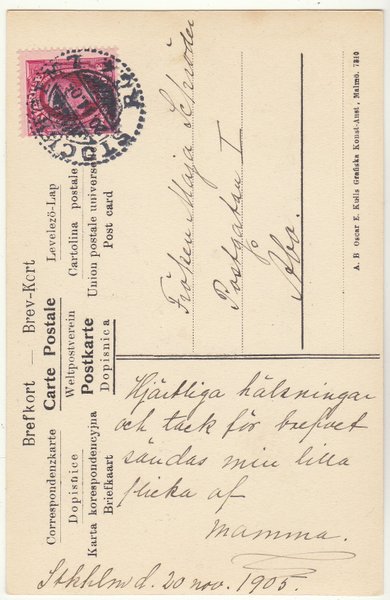 Brefkort — Brev-Kort
Carte Postale
Levelező-Lap
Weltpostverein
Cartolina postale
Postkarte
Union postale universelle
Dopisnica
Post card
Correspondenzkarte
Dopisnice
Karta korespondencyjna
Briefkaart
Fröken Maja Schröder
Postgatan I
Åbo.
A. B Oscar E. Kulls Grafiska Konst-Anst., Malmö. 7310
Hjärtliga hälsningar
och tack för brefvet
sändas min lilla
flicka af
Mamma.
Stkhlm d. 20 nov. 1905.